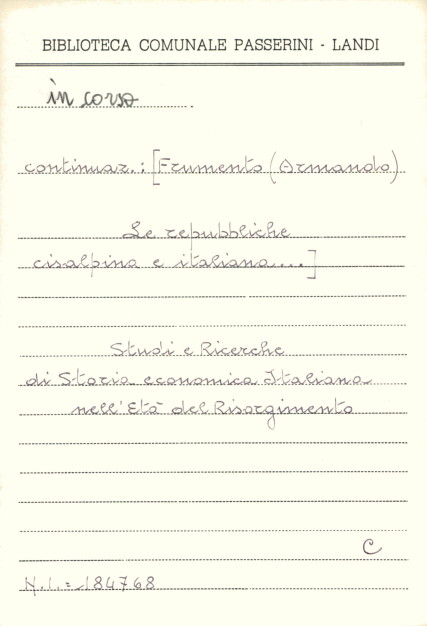 BIBLIOTECA COMUNALE PASSERINI - LANDI
in corso
continuaz.: [Frumento (Armando)
Le repubbliche
cisalpina e italiana...]
Studi e Ricerche
di Storia economica Italiana
nell'Età del Risorgimento
C
N.I.= 184768